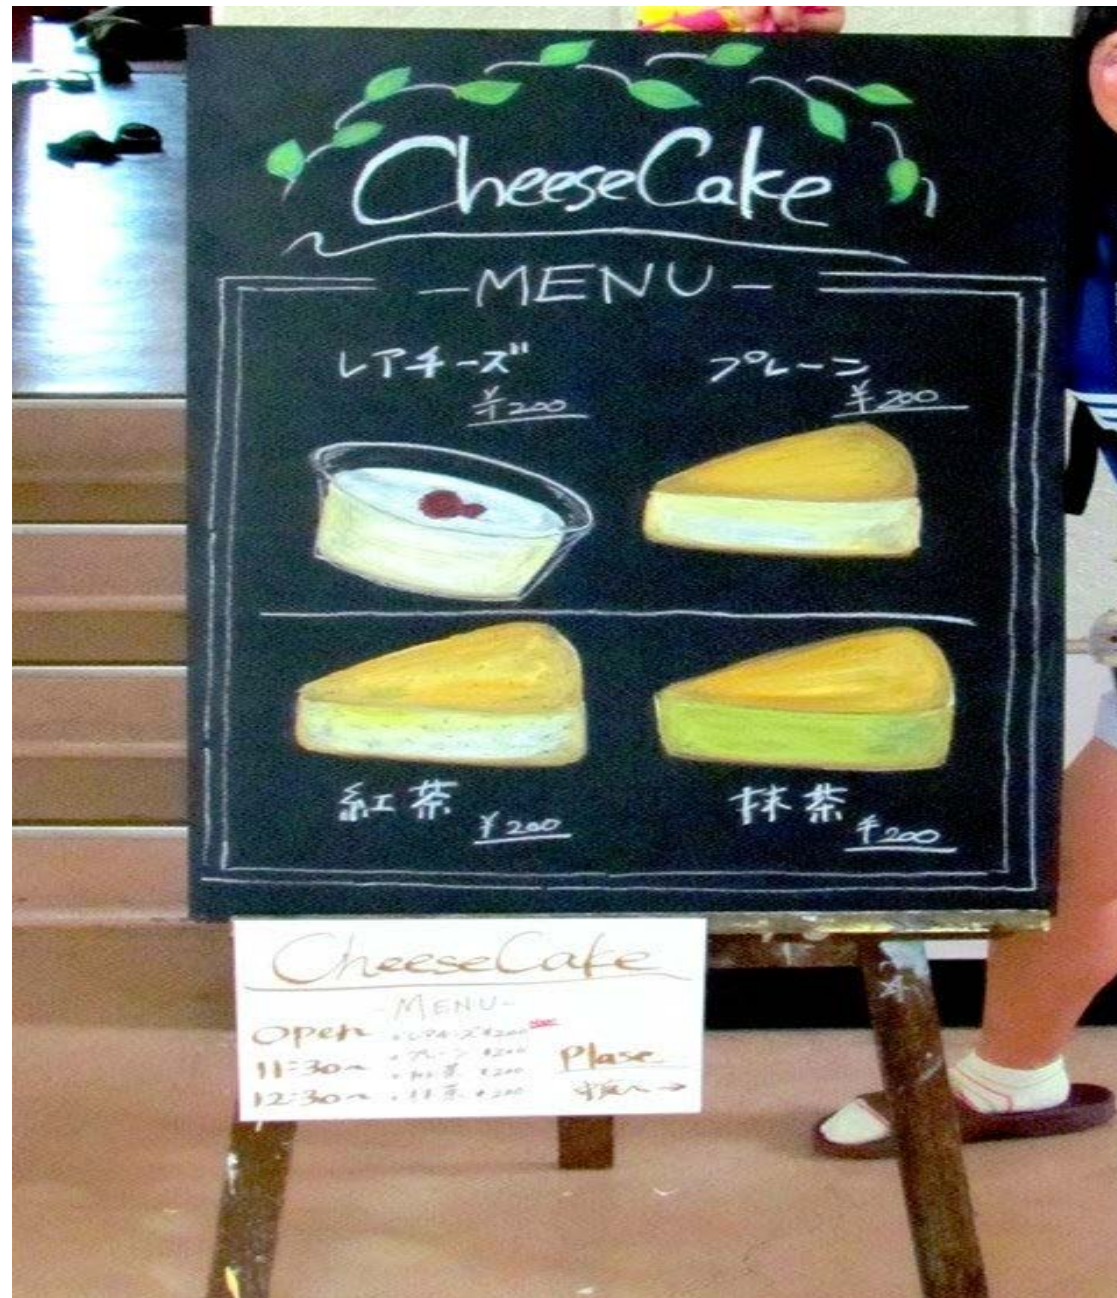 CheeseCake
-MENU-
レアチーズ
¥200
プレーン
¥200
紅茶
¥200
抹茶
¥200
CheeseCake
-MENU-
Open
11:30~
12:30~
・レアチーズ ¥200
・プレーン ¥200
・紅茶 ¥200
・抹茶 ¥200
Plase